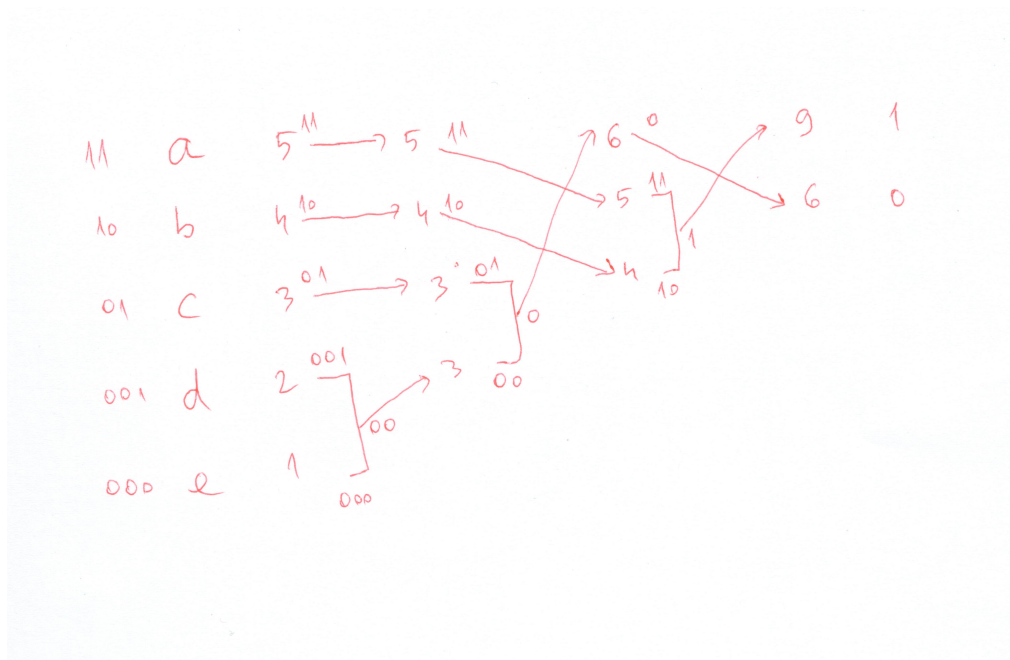 11 a 5 11 → 5 11 6 0 9 1
10 b 4 10 → 4 10 5 11 1 6 0
01 c 3 01 → 3 01 0 4 10
001 d 2 001 00 3 00
000 e 1 000